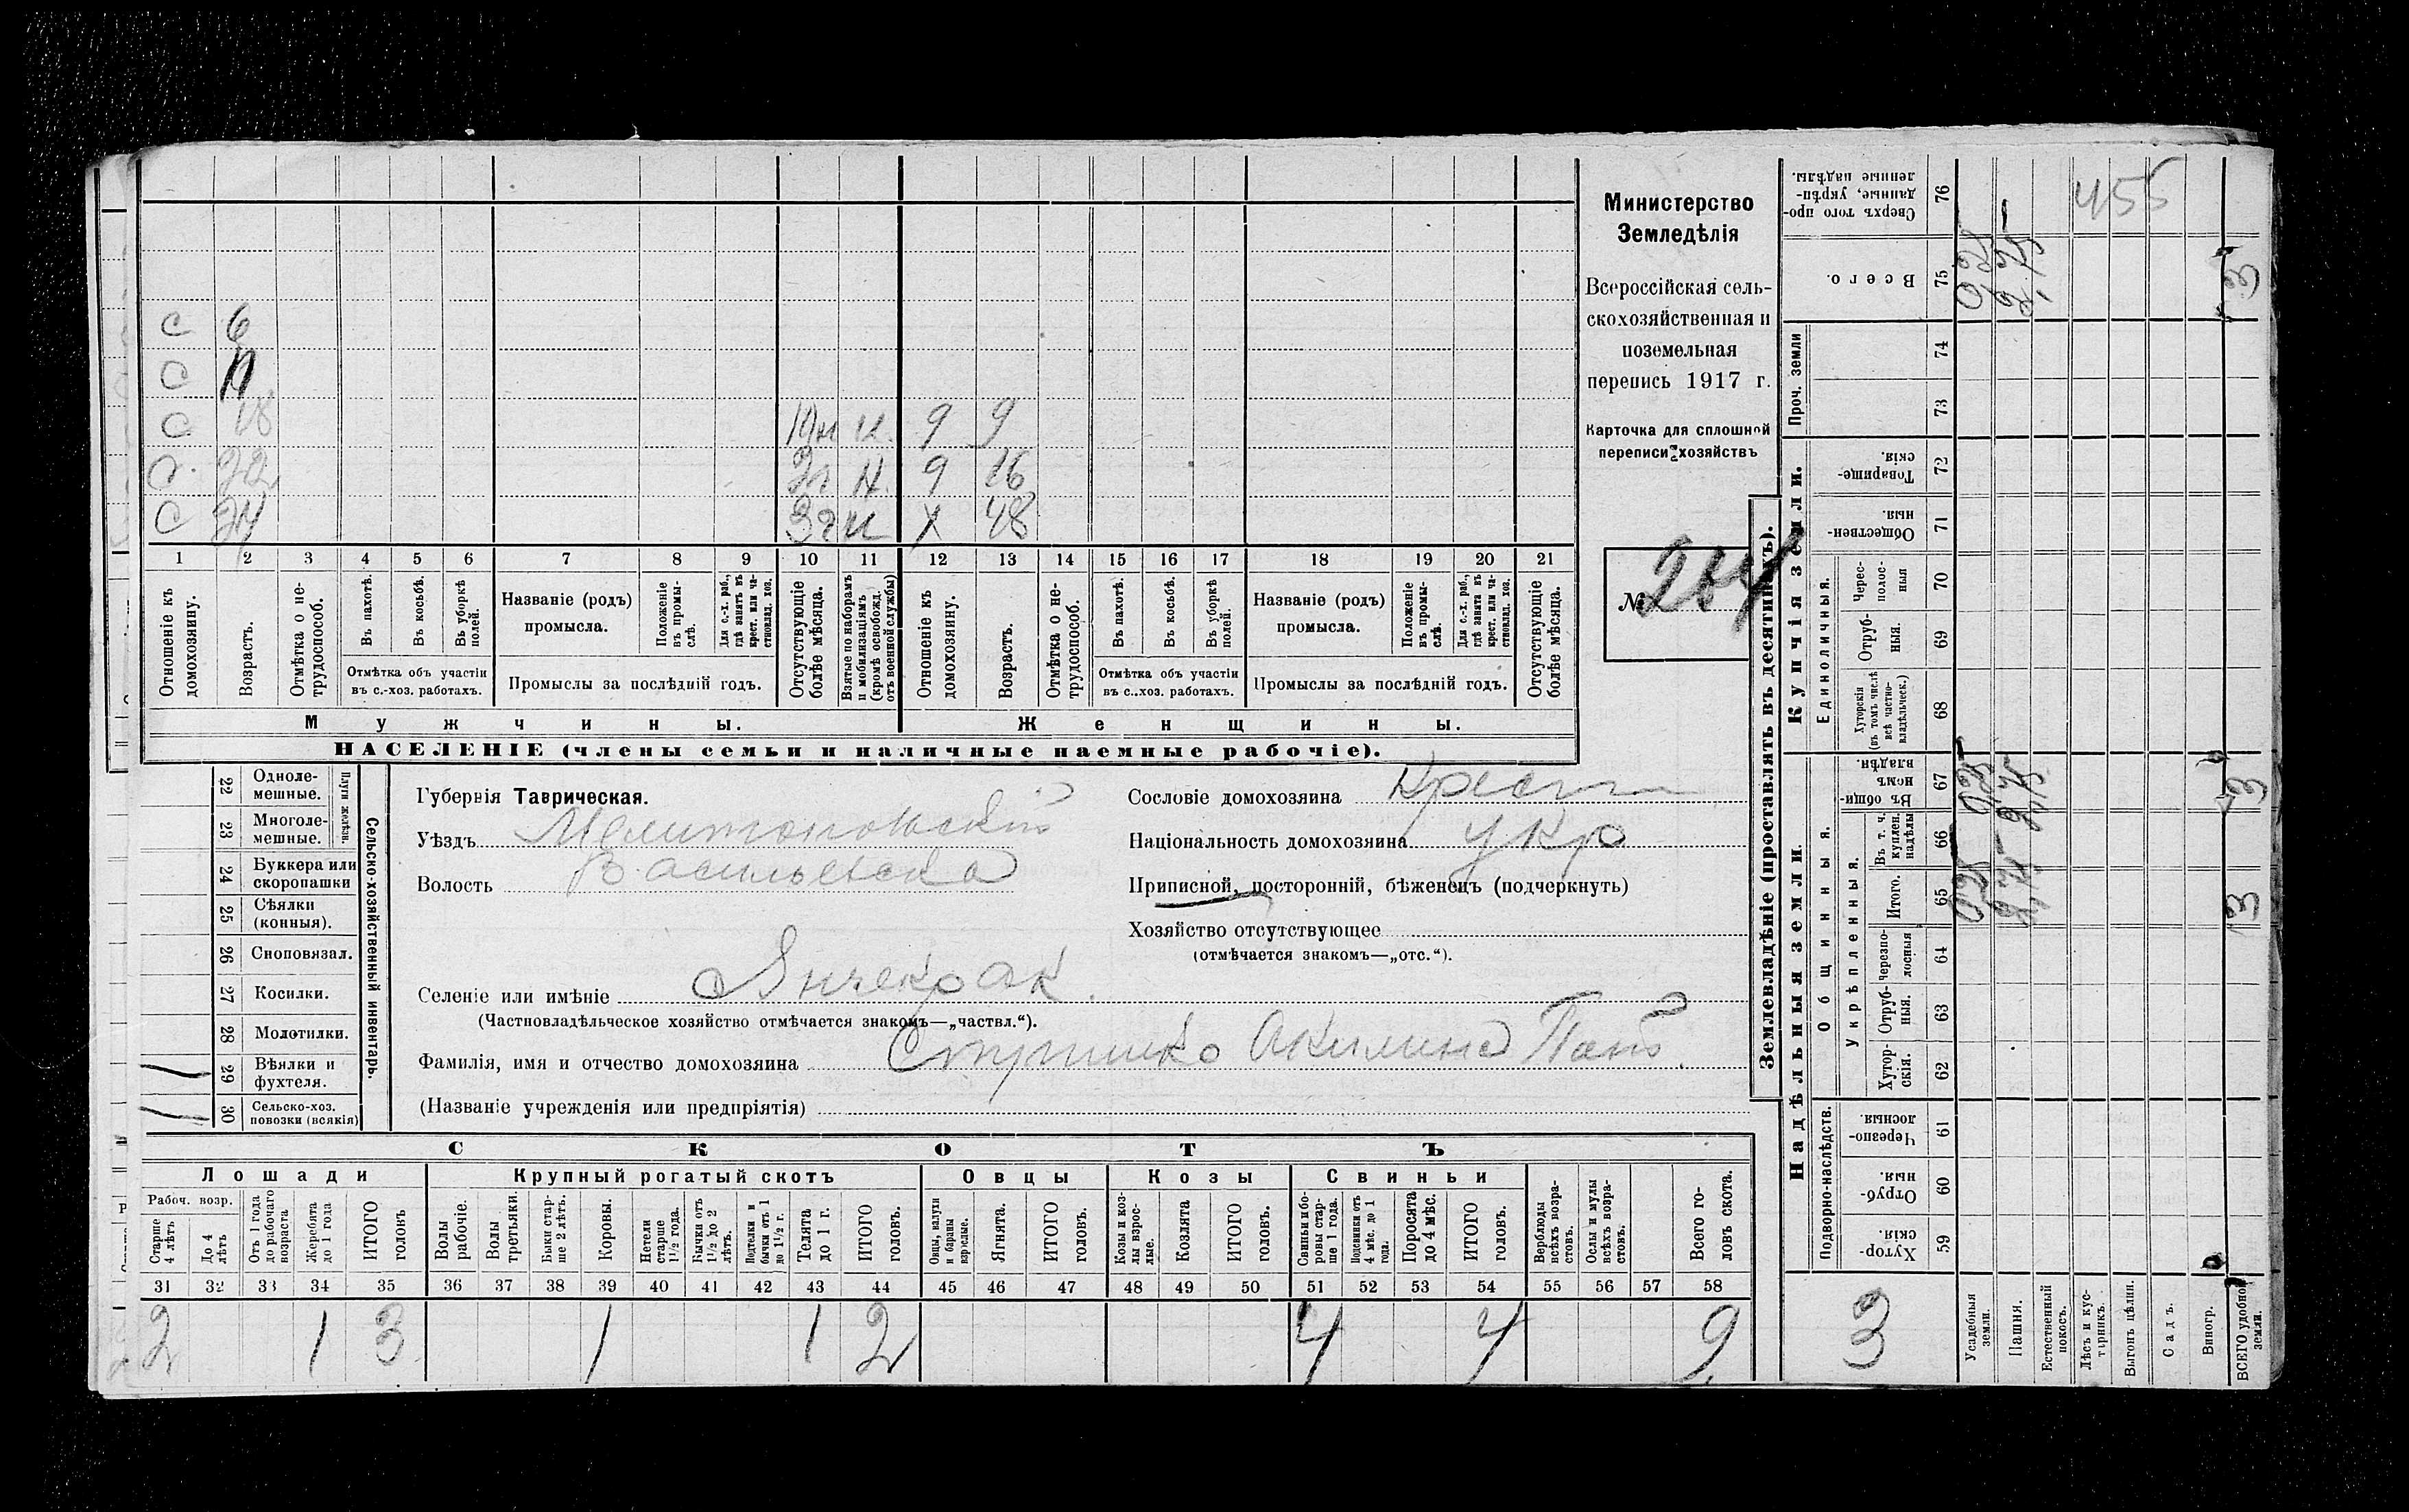 Министерство
Земледѣлія
Всероссійская сель-
скохозяйственная и
поземельная
перепись 1917 г.
Карточка для сплошной
переписи хозяйствъ
№ 264
с 6
с
с 18 н. 9 9
с. 22 2г н. 9 16
с 24 3г н х 48
1 2 3 4 5 6 7 8 9 10 11 12 13 14 15 16 17 18 19 20 21
Отношеніе къ домохозяину.
Возрастъ.
Отмѣтка о не-трудоспособ.
Въ пахотѣ.
Въ косьбѣ.
Въ уборкѣ полей.
Отмѣтка объ участіи
въ с.-хоз. работахъ.
Названіе (родъ)
промысла.
Положеніе въ промы-слѣ.
Для с.-х. раб., гдѣ занятъ въ крест. или ча-стновлад. хоз.
Промыслы за послѣдній годъ.
Отсутствующіе болѣе мѣсяца.
Взятые по наборамъ и мобилизаціямъ (кромѣ освобожд. отъ военной службы)
Отношеніе къ домохозяину.
Возрастъ.
Отмѣтка о не-трудоспособ.
Въ пахотѣ.
Въ косьбѣ.
Въ уборкѣ полей.
Отмѣтка объ участіи
въ с.-хоз. работахъ.
Названіе (родъ)
промысла.
Положеніе въ промы-слѣ.
Для с.-х. раб., гдѣ занята въ крест. или ча-стновлад. хоз.
Промыслы за послѣдній годъ.
Отсутствующіе болѣе мѣсяца.
Мужчины.
Женщины.
НАСЕЛЕНІЕ (члены семьи и наличные наемные рабочіе).
Сельско-хозяйственный инвентарь.
Плуги желѣзн.
22 Одноле-мешные.
23 Многоле-мешные.
24 Буккера или скоропашки
25 Сѣялки (конныя).
26 Сноповязал.
27 Косилки.
28 Молотилки.
29 Вѣялки и фухтеля.
30 Сельско-хоз. повозки (всякія)
Губернія Таврическая.
Уѣздъ Мелитопольскій
Волость Васильевская
Селеніе или имѣніе Янчекрак.
(Частновладѣльческое хозяйство отмѣчается знакомъ—„частвл.“).
Фамилія, имя и отчество домохозяина Акилина
(Названіе учрежденія или предпріятія)
Сословіе домохозяина Крест
Національность домохозяина Укр
Приписной, посторонній, бѣженецъ (подчеркнуть)
Хозяйство отсутствующее
(отмѣчается знакомъ—„отс.“).
СКОТЪ
Лошади
Крупный рогатый скотъ
Овцы
Козы
Свиньи
Рабоч. возр.
Старше 4 лѣтъ
До 4 лѣтъ
Отъ 1 года до рабочаго возраста
Жеребята до 1 года
ИТОГО головъ
Волы рабочіе.
Волы третьяки.
Быки стар-ше 2 лѣтъ.
Коровы.
Нетели старше 1½ года.
Бычки отъ 1½ до 2 лѣтъ.
Подтелки и бычки отъ 1 до 1½ г.
Телята до 1 г.
ИТОГО головъ.
Овцы, валухи и бараны взрослые.
Ягнята.
ИТОГО головъ.
Козы и коз-лы взрос-лые.
Козлята
ИТОГО головъ.
Свиньи и бо-ровы стар-ше 1 года.
Подсвинки отъ 4 мѣс. до 1 года.
Поросята до 4 мѣс.
ИТОГО головъ.
Верблюды всѣхъ возра-стовъ.
Ослы и мулы всѣхъ возра-стовъ.
Всего го-ловъ скота.
31 32 33 34 35 36 37 38 39 40 41 42 43 44 45 46 47 48 49 50 51 52 53 54 55 56 57 58
2 1 3 1 1 2 4 4 9
Землевладѣніе (проставлять въ десятинахъ).
Надѣльныя земли.
Купчія земли.
Проч. земли
Подворно-наслѣдств.
Общинныя.
Укрѣпленныя.
Единоличныя.
Хутор-скія. 59
Отруб-ныя. 60
Черезпо-лосныя 61
Хутор-скія. 62
Отруб-ныя. 63
Черезпо-лосныя 64
Итого. 65
Въ т. ч. куплен. надѣлы 66
Въ общин-номъ владѣн. 67
Хуторскія (въ томъ числѣ всѣ частно-владѣльческ.) 68
Отруб-ныя. 69
Черес-полос-ныя 70
Обществен-ныя. 71
Товарище-скія. 72
73
74
Всего. 75
Сверхъ того про-данные, укрѣп-ленные надѣлы. 76
455
3
Усадебныя земли.
Пашня.
Естественный покосъ.
Лѣсъ и кус-тарникъ.
Выгонъ цѣлин.
Садъ.
Виногр.
ВСЕГО удобной земли.
3
3
3